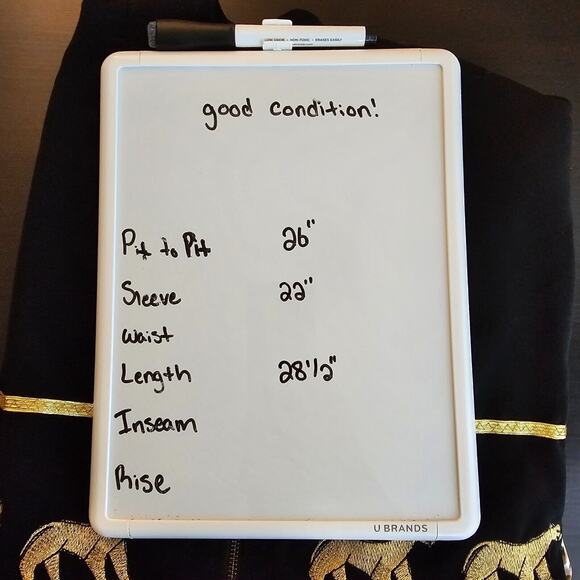 LOW ODOR • NON-TOXIC • ERASES EASILY
good condition!
Pit to Pit 26"
Sleeve 22"
waist
Length 28 1/2"
Inseam
Rise
U BRANDS